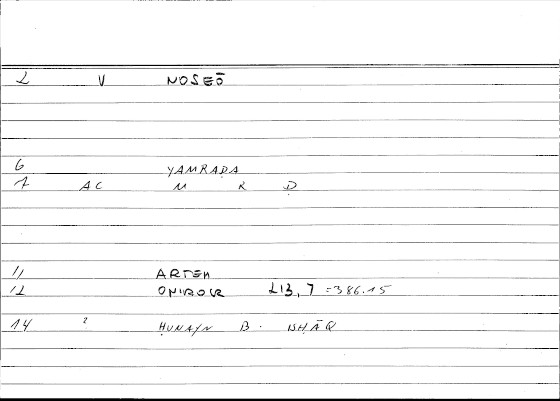 2 V NOSEŌ
6 YAMRAḌA
7 AC M R Ḍ
11 ARTEM
12 ONIROCR 213, 7 =386.15
14 ? ḤUNAYN B. ISḤĀQ